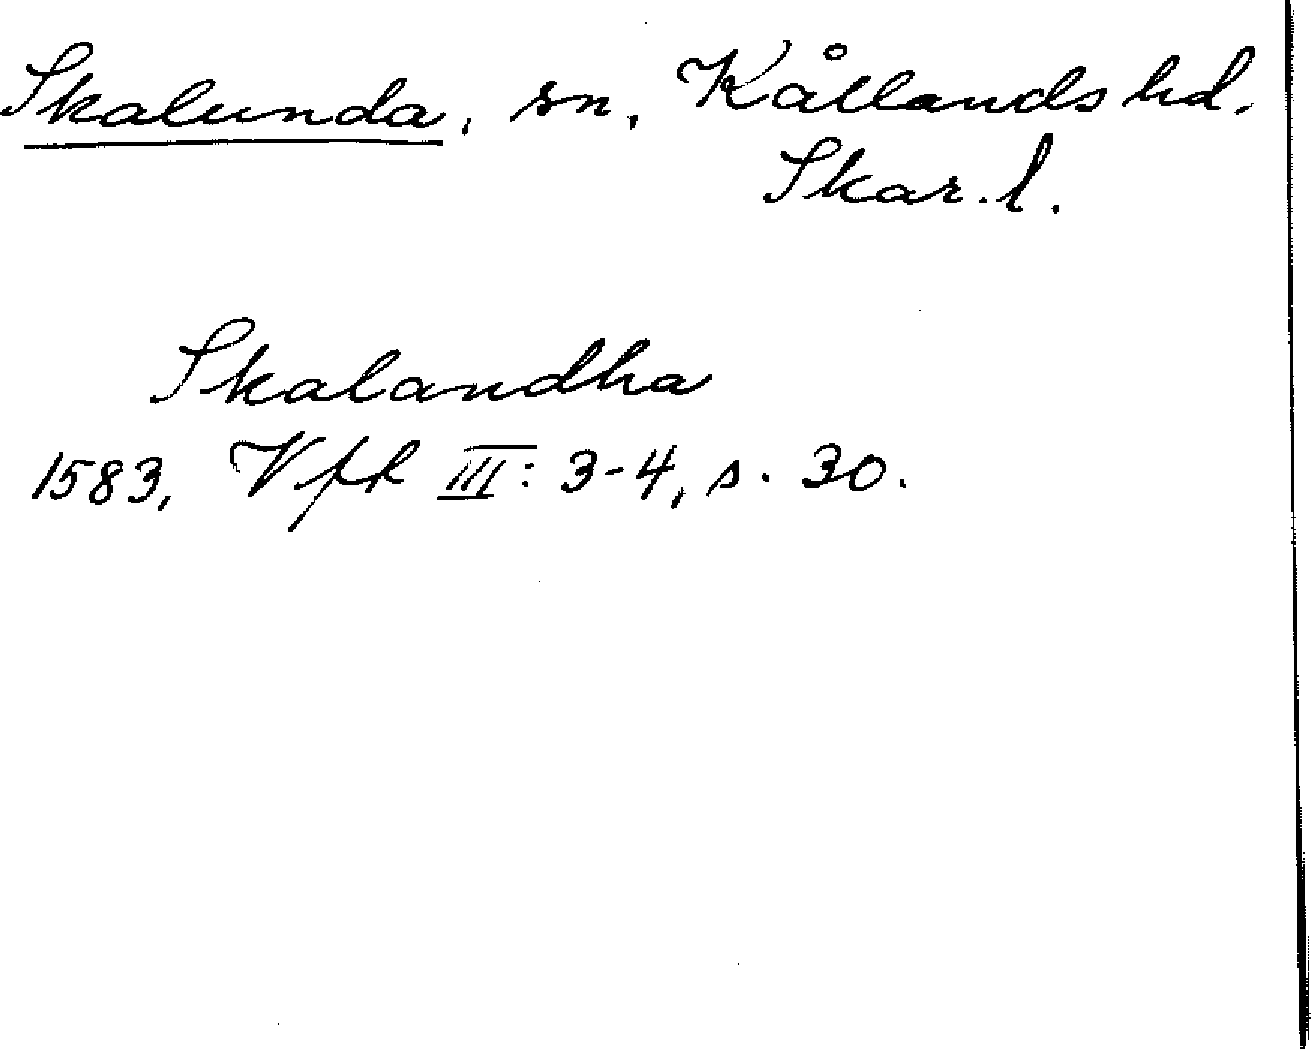 Skalunda, sn, Kållands hd.
Skar. l.
Skalandha
1583, Vfk III: 3-4, s. 30.